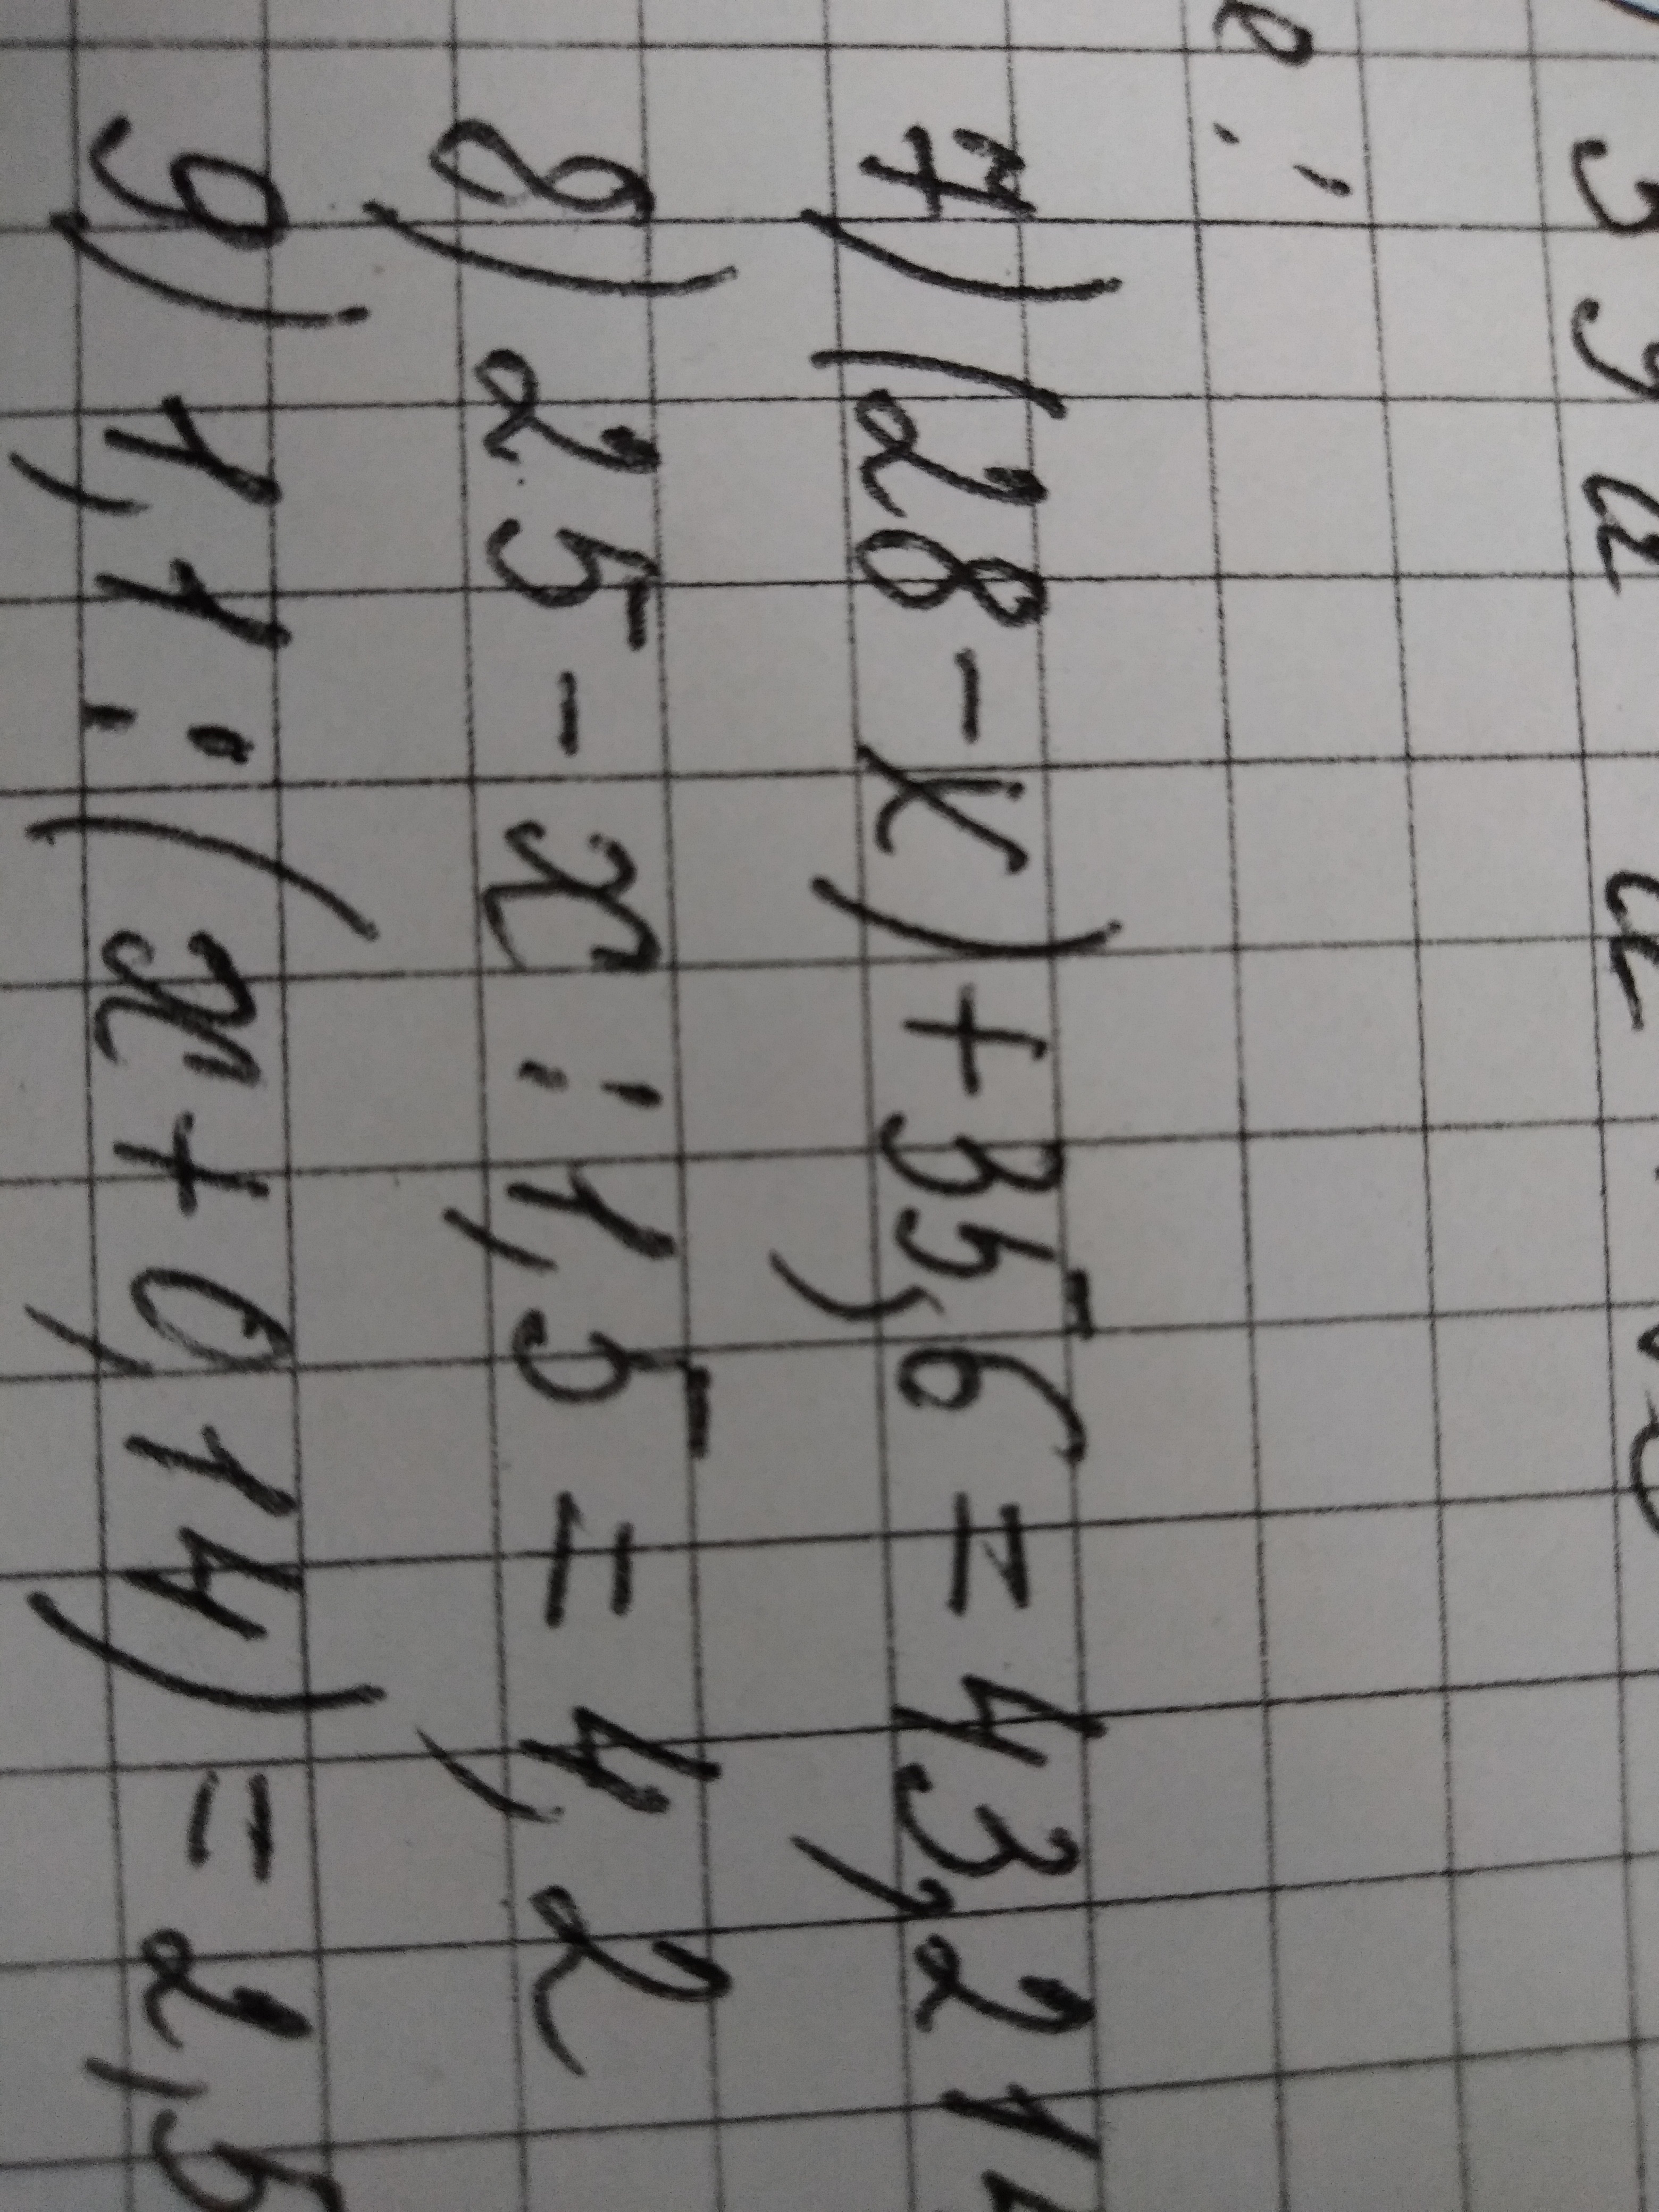 7) (28 - x) + 35,6 = 43,21
8) 25 - x : 1,5 = 4,2
9) 1,1 : (x + 0,14) = 2,5